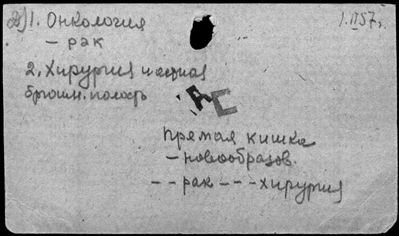 1. Онкология
1.II57г.
– рак
2. Хирургия
брюшн. полость
АС
прямая кишка
– новообразов.
– – рак – – – хирургия